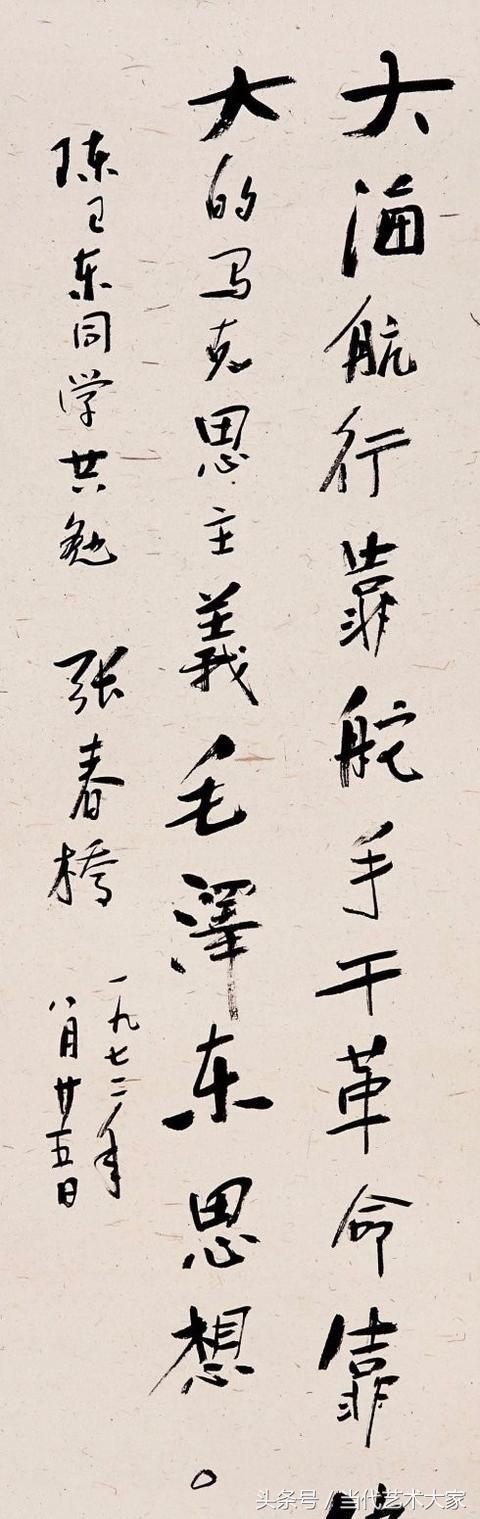 大海航行靠舵手干革命靠
大的马克思主義毛澤东思想。
陈卫东同学共勉 张春橋
一九七二年
八月廿五日
头条号 / 当代艺术大家